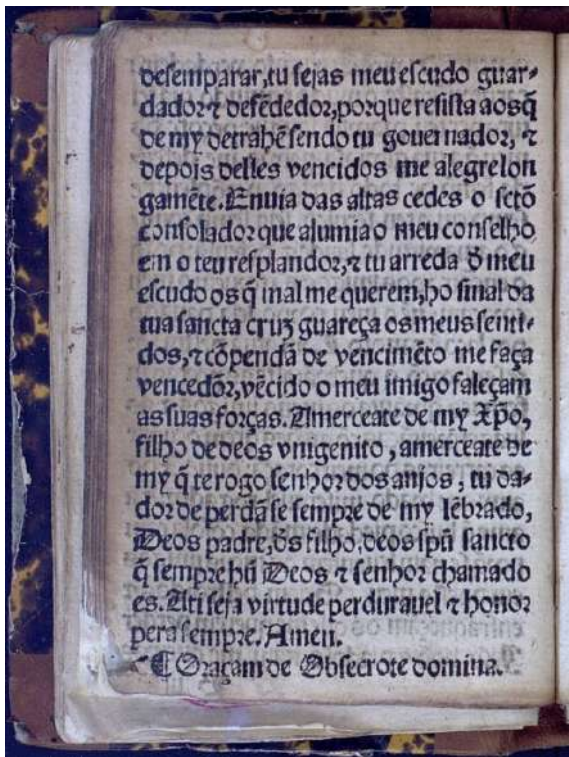 desemparar,tu sejas meu escudo guar-
dador⁊ defẽdedor,porque resista aosq̃
de my detrahẽ sendo tu gouernador, ⁊
depois delles vencidos me alegre lon
gamẽte.Enuia das altas cedes o sctõ
consolador que alumia o meu conselho
em o teu resplandor,⁊ tu arreda õ meu
escudo os q̃ mal me querem,ho sinal da
tua sancta cruz guareça os meus senti-
dos,⁊ cõpendã de vencimẽto me faça
vencedor,vẽcido o meu imigo faleçam
as suas forças.Amerceate de my Xp̃o,
filho de deos vnigenito , amerceate de
my q̃ te rogo senhor dos anjos , tu da-
dor de perdã se sempre de my lẽbrado,
Deos padre,d̃s filho,deos spũ sancto
q̃ sempre hũ Deos ⁊ senhor chamado
es.Ati seja virtude perdurauel ⁊ honor
pera sempre.Amen.
☙ ¶ Oraçam de Obsecrote domina.